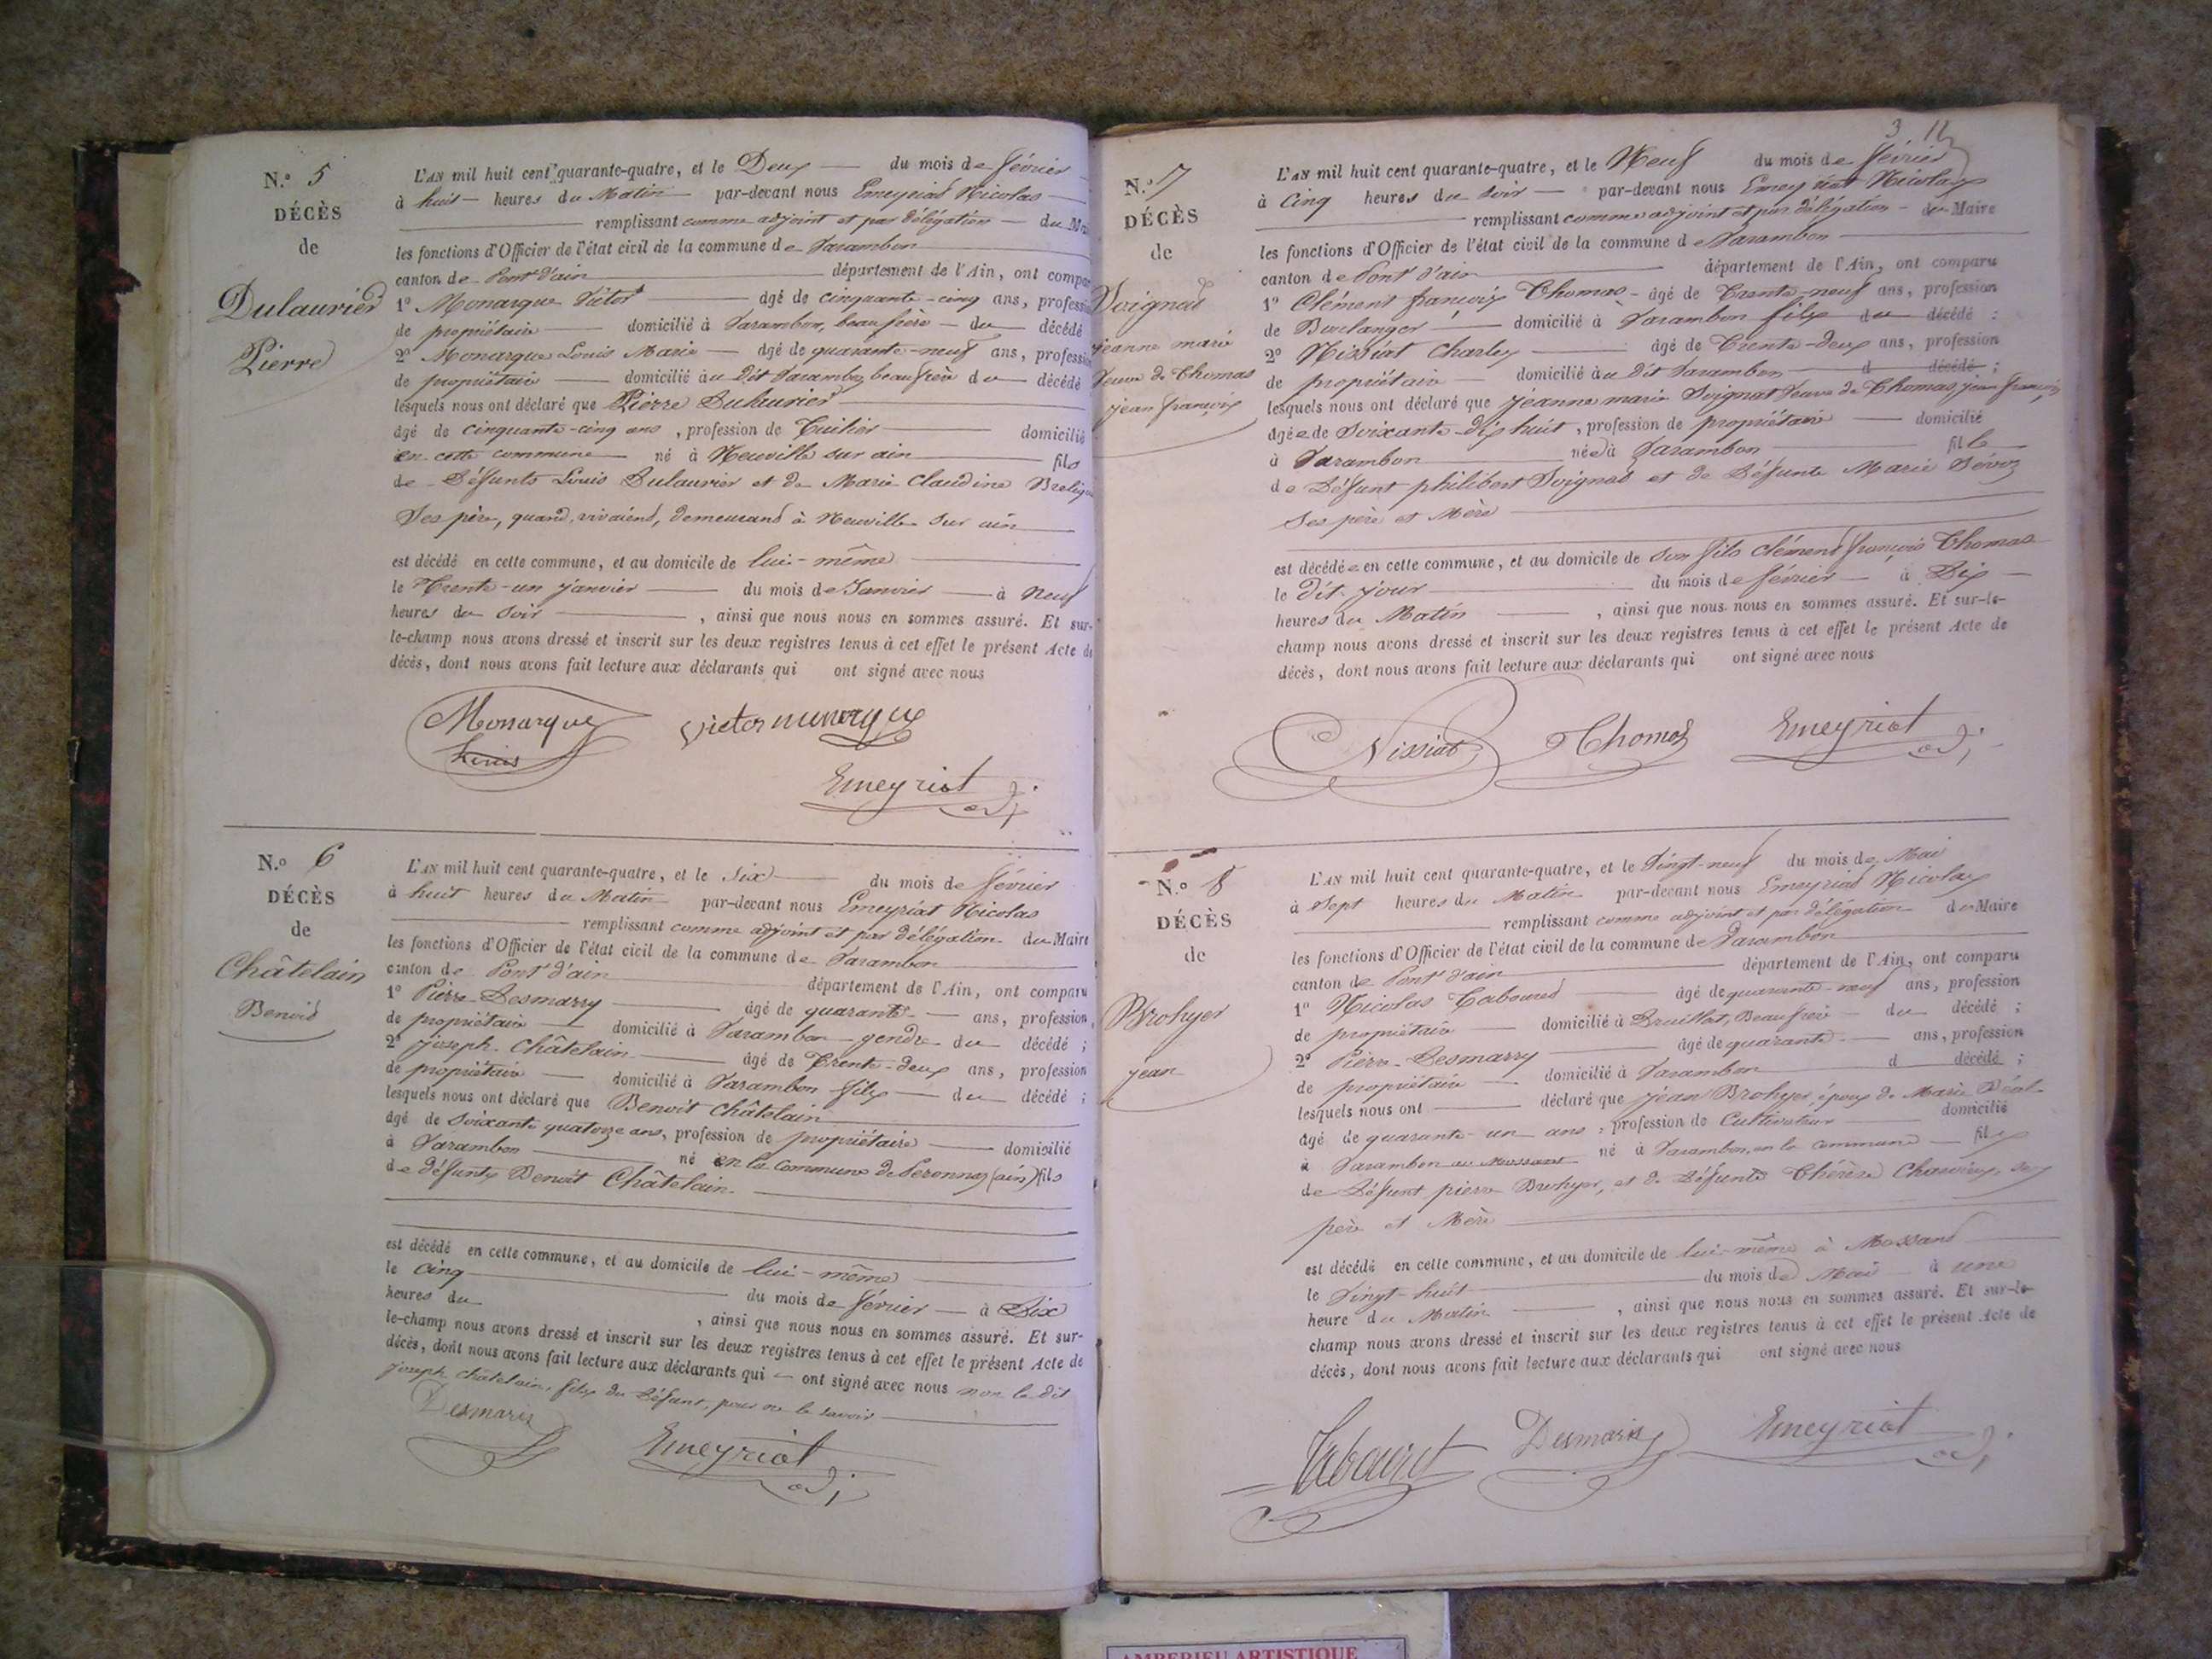 N.º 5
DÉCÈS
de
Dulaurier
Pierre
L'AN mil huit cent quarante-quatre, et le Deux du mois de février
à huit heures du Matin par-devant nous Emeyriat Nicolas
remplissant comme adjoint et par délégation du Ma
les fonctions d'Officier de l'état civil de la commune de Varambon
canton de Pont d'ain département de l'Ain, ont compar
1º Monarque Victor âgé de cinquante-cinq ans, professi
de propriétaire domicilié à Varambon, beaufrère du décédé
2º Monarque Louis Marie âgé de quarante-neuf ans, professi
de propriétaire domicilié au dit Varambon, beaufrère du décédé
lesquels nous ont déclaré que Pierre Dulaurier
âgé de cinquante-cinq ans, profession de Tuilier domicilié
en cette commune né à Neuville sur ain fils
de Défunts Louis Dulaurier et de Marie Claudine
Ses père, quand, vivaient, demeurand à Neuville sur ain
est décédé en cette commune, et au domicile de lui-même
le Trente-un janvier du mois de Janvier à Neuf
heures du soir, ainsi que nous nous en sommes assuré. Et sur-
le-champ nous avons dressé et inscrit sur les deux registres tenus à cet effet le présent Acte de
décès, dont nous avons fait lecture aux déclarants qui ont signé avec nous
Monarque
Louis
Victor
Emeyriat
adj
N.º 6
DÉCÈS
de
Châtelain
Benoit
L'AN mil huit cent quarante-quatre, et le six du mois de février
à huit heures du Matin par-devant nous Emeyriat Nicolas
remplissant comme adjoint et par délégation du Maire
les fonctions d'Officier de l'état civil de la commune de Varambon
canton de Pont d'ain département de l'Ain, ont comparu
1º Pierre Desmarry âgé de quarante ans, profession
de propriétaire domicilié à Varambon gendre du décédé ;
2º joseph Châtelain âgé de Trente-deux ans, profession
de propriétaire domicilié à Varambon fils du décédé ;
lesquels nous ont déclaré que Benoit Châtelain
âgé de soixante quatorze ans, profession de propriétaire domicilié
à Varambon né en la Commune de Peronnas (ain) fils
de défunts Benoit Châtelain
est décédé en cette commune, et au domicile de lui-même
le cinq du mois de février à Dix
heures du , ainsi que nous nous en sommes assuré. Et sur-
le-champ nous avons dressé et inscrit sur les deux registres tenus à cet effet le présent Acte de
décès, dont nous avons fait lecture aux déclarants qui ont signé avec nous non le dit
joseph châtelain, fils du Défunt, pour ne le savoir
Desmaris
Emeyriat
adj
3
N.º 7
DÉCÈS
de
Soignat
jeanne marie
Veuve de Thomas
jean françois
L'AN mil huit cent quarante-quatre, et le Neuf du mois de février
à Cinq heures du soir par-devant nous Emeyriat Nicolas
remplissant comme adjoint et par délégation du Maire
les fonctions d'Officier de l'état civil de la commune de Varambon
canton de Pont d'ain département de l'Ain, ont comparu
1º Clément françois Thomas âgé de Trente-neuf ans, profession
de Boulanger domicilié à Varambon fils du décédé ;
2º Nissiat Charles âgé de Trente-deux ans, profession
de propriétaire domicilié au dit Varambon d décédé ;
lesquels nous ont déclaré que jeanne marie Soignat Veuve de Thomas, jean françois
âgée de Soixante-dix huit, profession de propriétaire domicilié
à Varambon née à Varambon fille
de Défunt philibert Soignat et de Défunte Marie
Ses père et Mère
est décédée en cette commune, et au domicile de son fils clément françois Thomas
le dit jour du mois de février à Dix
heures du Matin, ainsi que nous nous en sommes assuré. Et sur-le-
champ nous avons dressé et inscrit sur les deux registres tenus à cet effet le présent Acte de
décès, dont nous avons fait lecture aux déclarants qui ont signé avec nous
Nissiat Thomas Emeyriat
adj
N.º 8
DÉCÈS
de
Brohyer
jean
L'AN mil huit cent quarante-quatre, et le Vingt-neuf du mois de Mai
à Sept heures du Matin par-devant nous Emeyriat Nicolas
remplissant comme adjoint et par délégation du Maire
les fonctions d'Officier de l'état civil de la commune de Varambon
canton de Pont d'ain département de l'Ain, ont comparu
1º Nicolas Tabouret âgé de quarante-neuf ans, profession
de propriétaire domicilié à Druillat, Beaufrère du décédé ;
2º Pierre Desmarry âgé de quarante ans, profession
de propriétaire domicilié à Varambon d décédé ;
lesquels nous ont déclaré que jean Brohyer, époux de Marie
âgé de quarante-un ans, profession de Cultivateur domicilié
à Varambon au Mossant né à Varambon, en la commune fils
de Défunt pierre Brohyer, et de Défunte Thérèse ses
père et Mère
est décédé en cette commune, et au domicile de lui-même à Mossand
le Vingt-huit du mois de Mai à une
heure du Matin, ainsi que nous nous en sommes assuré. Et sur-le-
champ nous avons dressé et inscrit sur les deux registres tenus à cet effet le présent Acte de
décès, dont nous avons fait lecture aux déclarants qui ont signé avec nous
Tabouret Desmaris Emeyriat
adj
AMBERIEU ARTISTIQUE